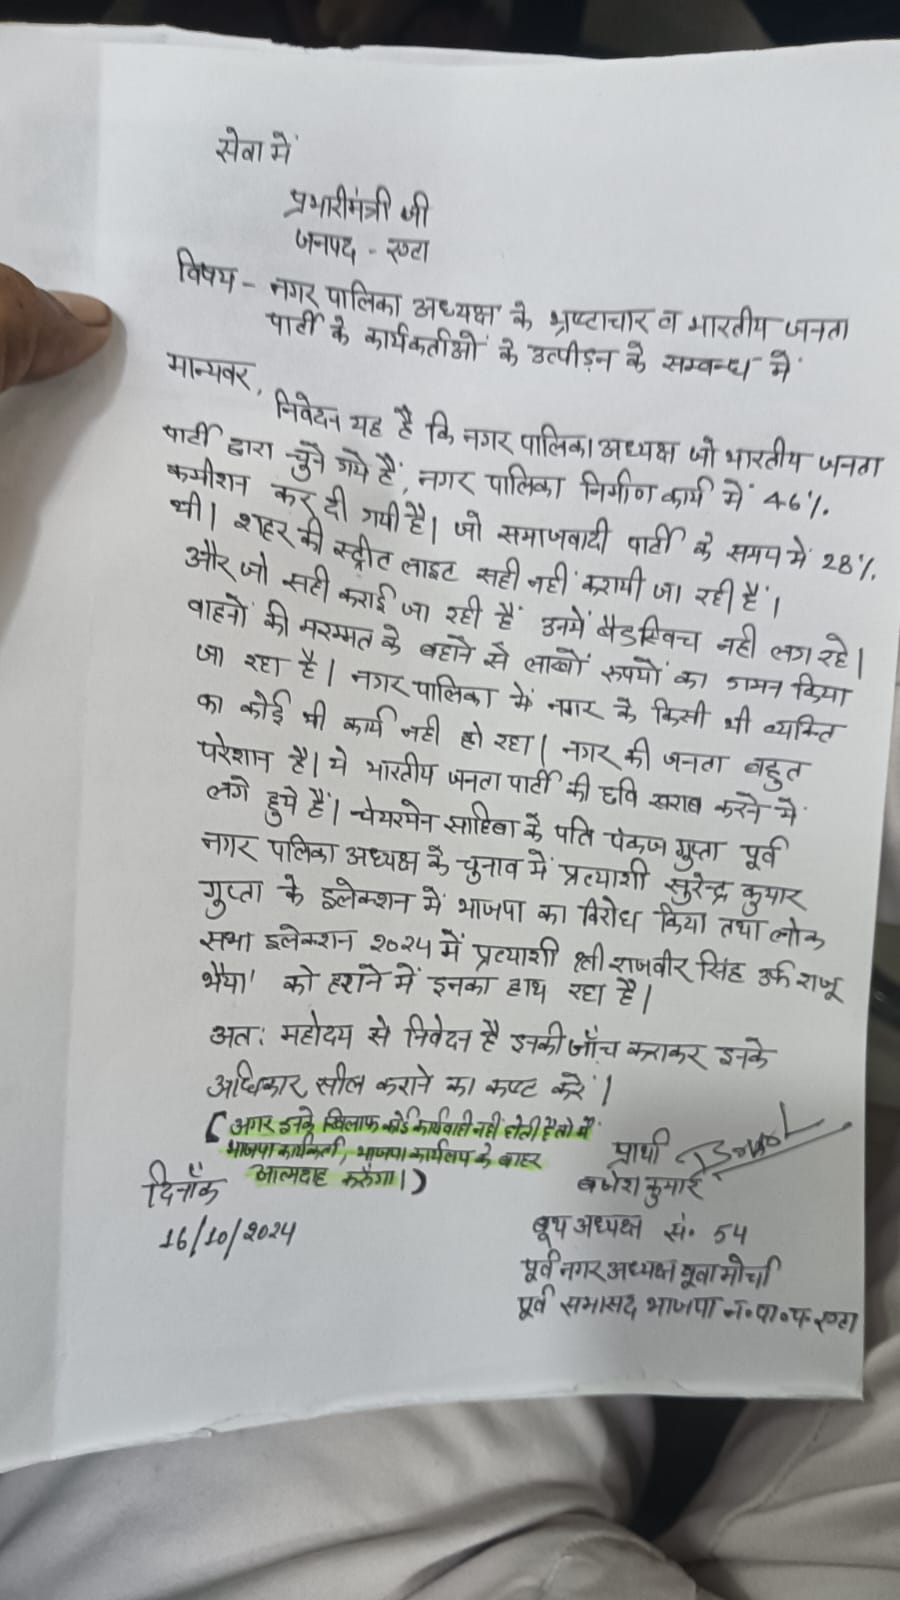 सेवा में
प्रभारीमंत्री जी
जनपद - एटा
विषय - नगर पालिका अध्यक्ष के भ्रष्टाचार व भारतीय जनता
पार्टी के कार्यकर्ताओं के उत्पीड़न के सम्बन्ध में
मान्यवर,
निवेदन यह है कि नगर पालिका अध्यक्ष जो भारतीय जनता
पार्टी द्वारा चुने गये हैं, नगर पालिका निर्माण कार्य में 46%
कमीशन कर दी गयी है। जो समाजवादी पार्टी के समय में 28%
थी। शहर की स्ट्रीट लाइट सही नहीं करायी जा रही हैं।
और जो सही कराई जा रही हैं उनमें बैडस्विच नही लग रहे।
वाहनों की मरम्मत के बहाने से लाखों रुपयों का गमन किया
जा रहा है। नगर पालिका में नगर के किसी भी व्यक्ति
का कोई भी कार्य नही हो रहा। नगर की जनता बहुत
परेशान है। ये भारतीय जनता पार्टी की छवि खराब करने में
लगे हुये हैं। चेयरमेन साहिबा के पति पंकज गुप्ता पूर्व
नगर पालिका अध्यक्ष के चुनाव में प्रत्याशी सुरेन्द्र कुमार
गुप्ता के इलेक्शन में भाजपा का विरोध किया तथा लोक
सभा इलेक्शन २०२४ में प्रत्याशी श्री राजवीर सिंह उर्फ राजू
भैया' को हराने में इनका हाथ रहा है।
अतः महोदय से निवेदन है इनकी जाँच कराकर इनके
अधिकार सील कराने का कष्ट करें।
(अगर इनके खिलाफ कोई कार्यवाही नहीं होती है तो मैं
भाजपा कार्यकर्ता, भाजपा कार्यालय के बाहर
आत्मदाह करूँगा।)
प्रार्थी
दिनाँक
16/10/२०२४
ब्रजेश कुमार
बूथ अध्यक्ष सं. 54
पूर्व नगर अध्यक्ष यूवा मोर्चा
पूर्व सभासद भाजपा न.पा.प. एटा